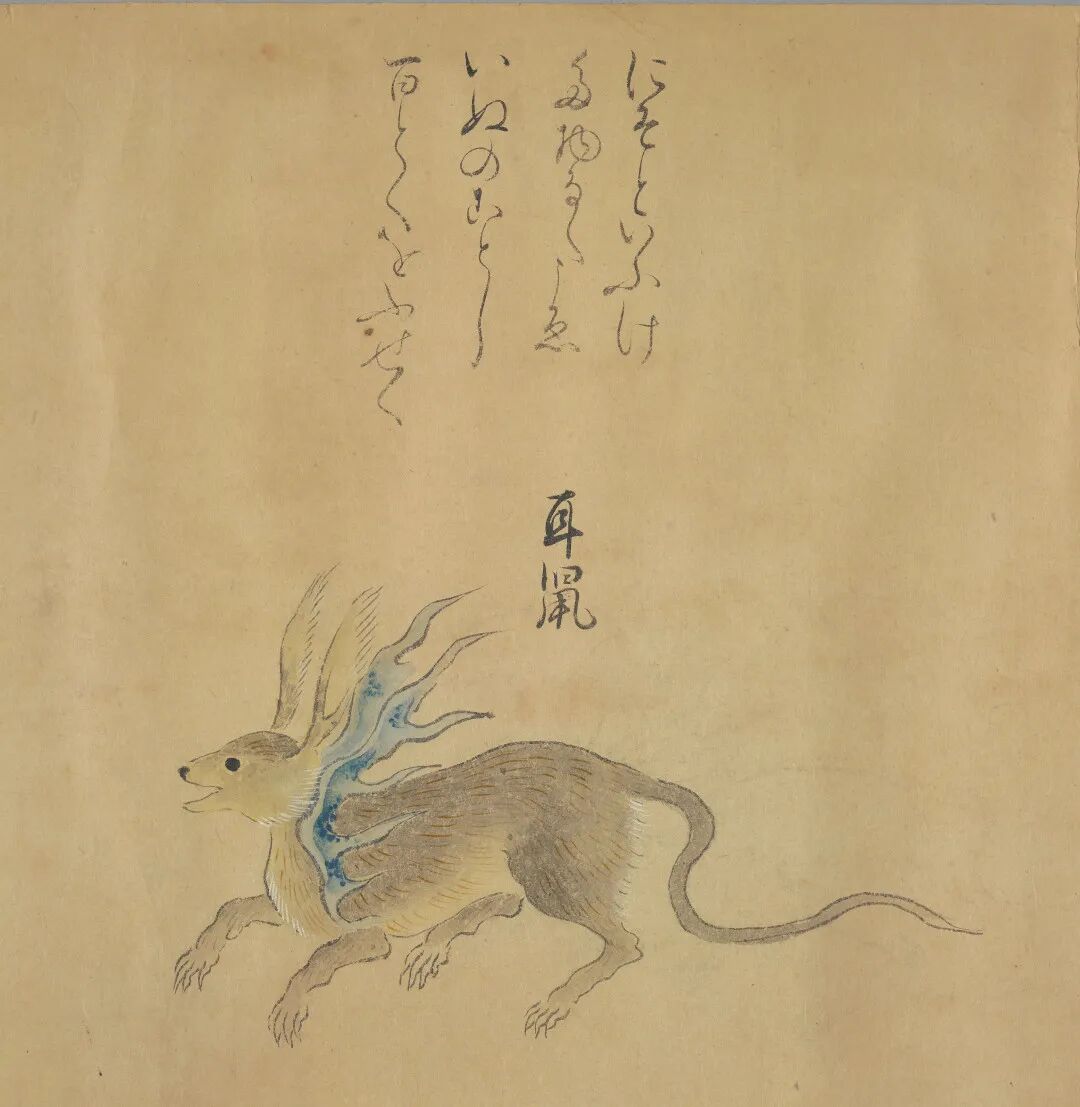 にそといふけ
た物なりこゑ
いぬのことし
百とくをふせく
耳鼠